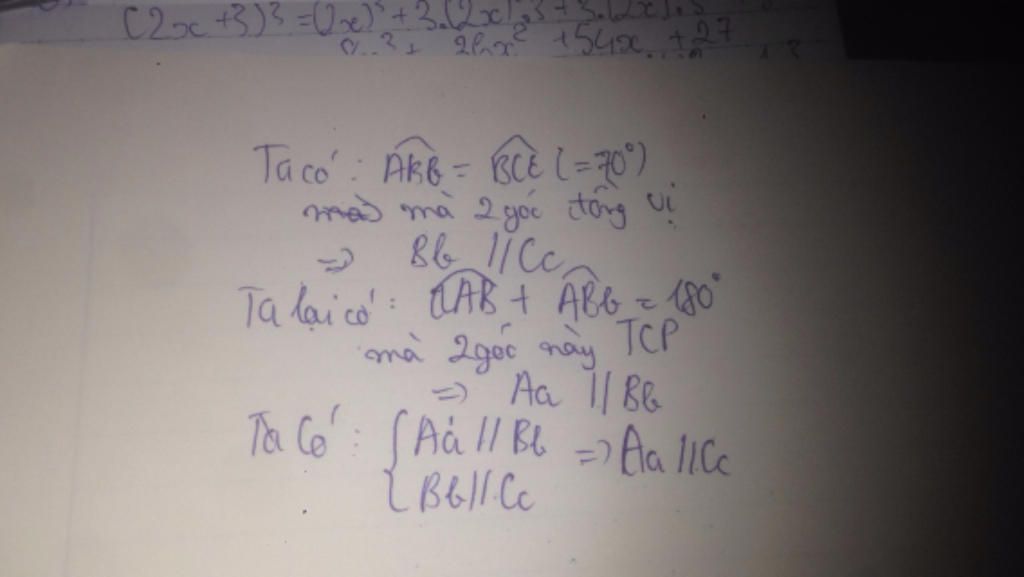 (2x+3)³ = (2x)³ + 3.(2x)².3 + 3.(2x).3
+ 54x + 27
Ta có : ABb = BCc (=70°)
mà 2 góc đồng vị
=> Bb // Cc
Ta lại có : aAB + ABb = 180°
mà 2 góc này TCP
=> Aa // Bb
Ta Có : { Aa // Bb => Aa // Cc
Bb // Cc